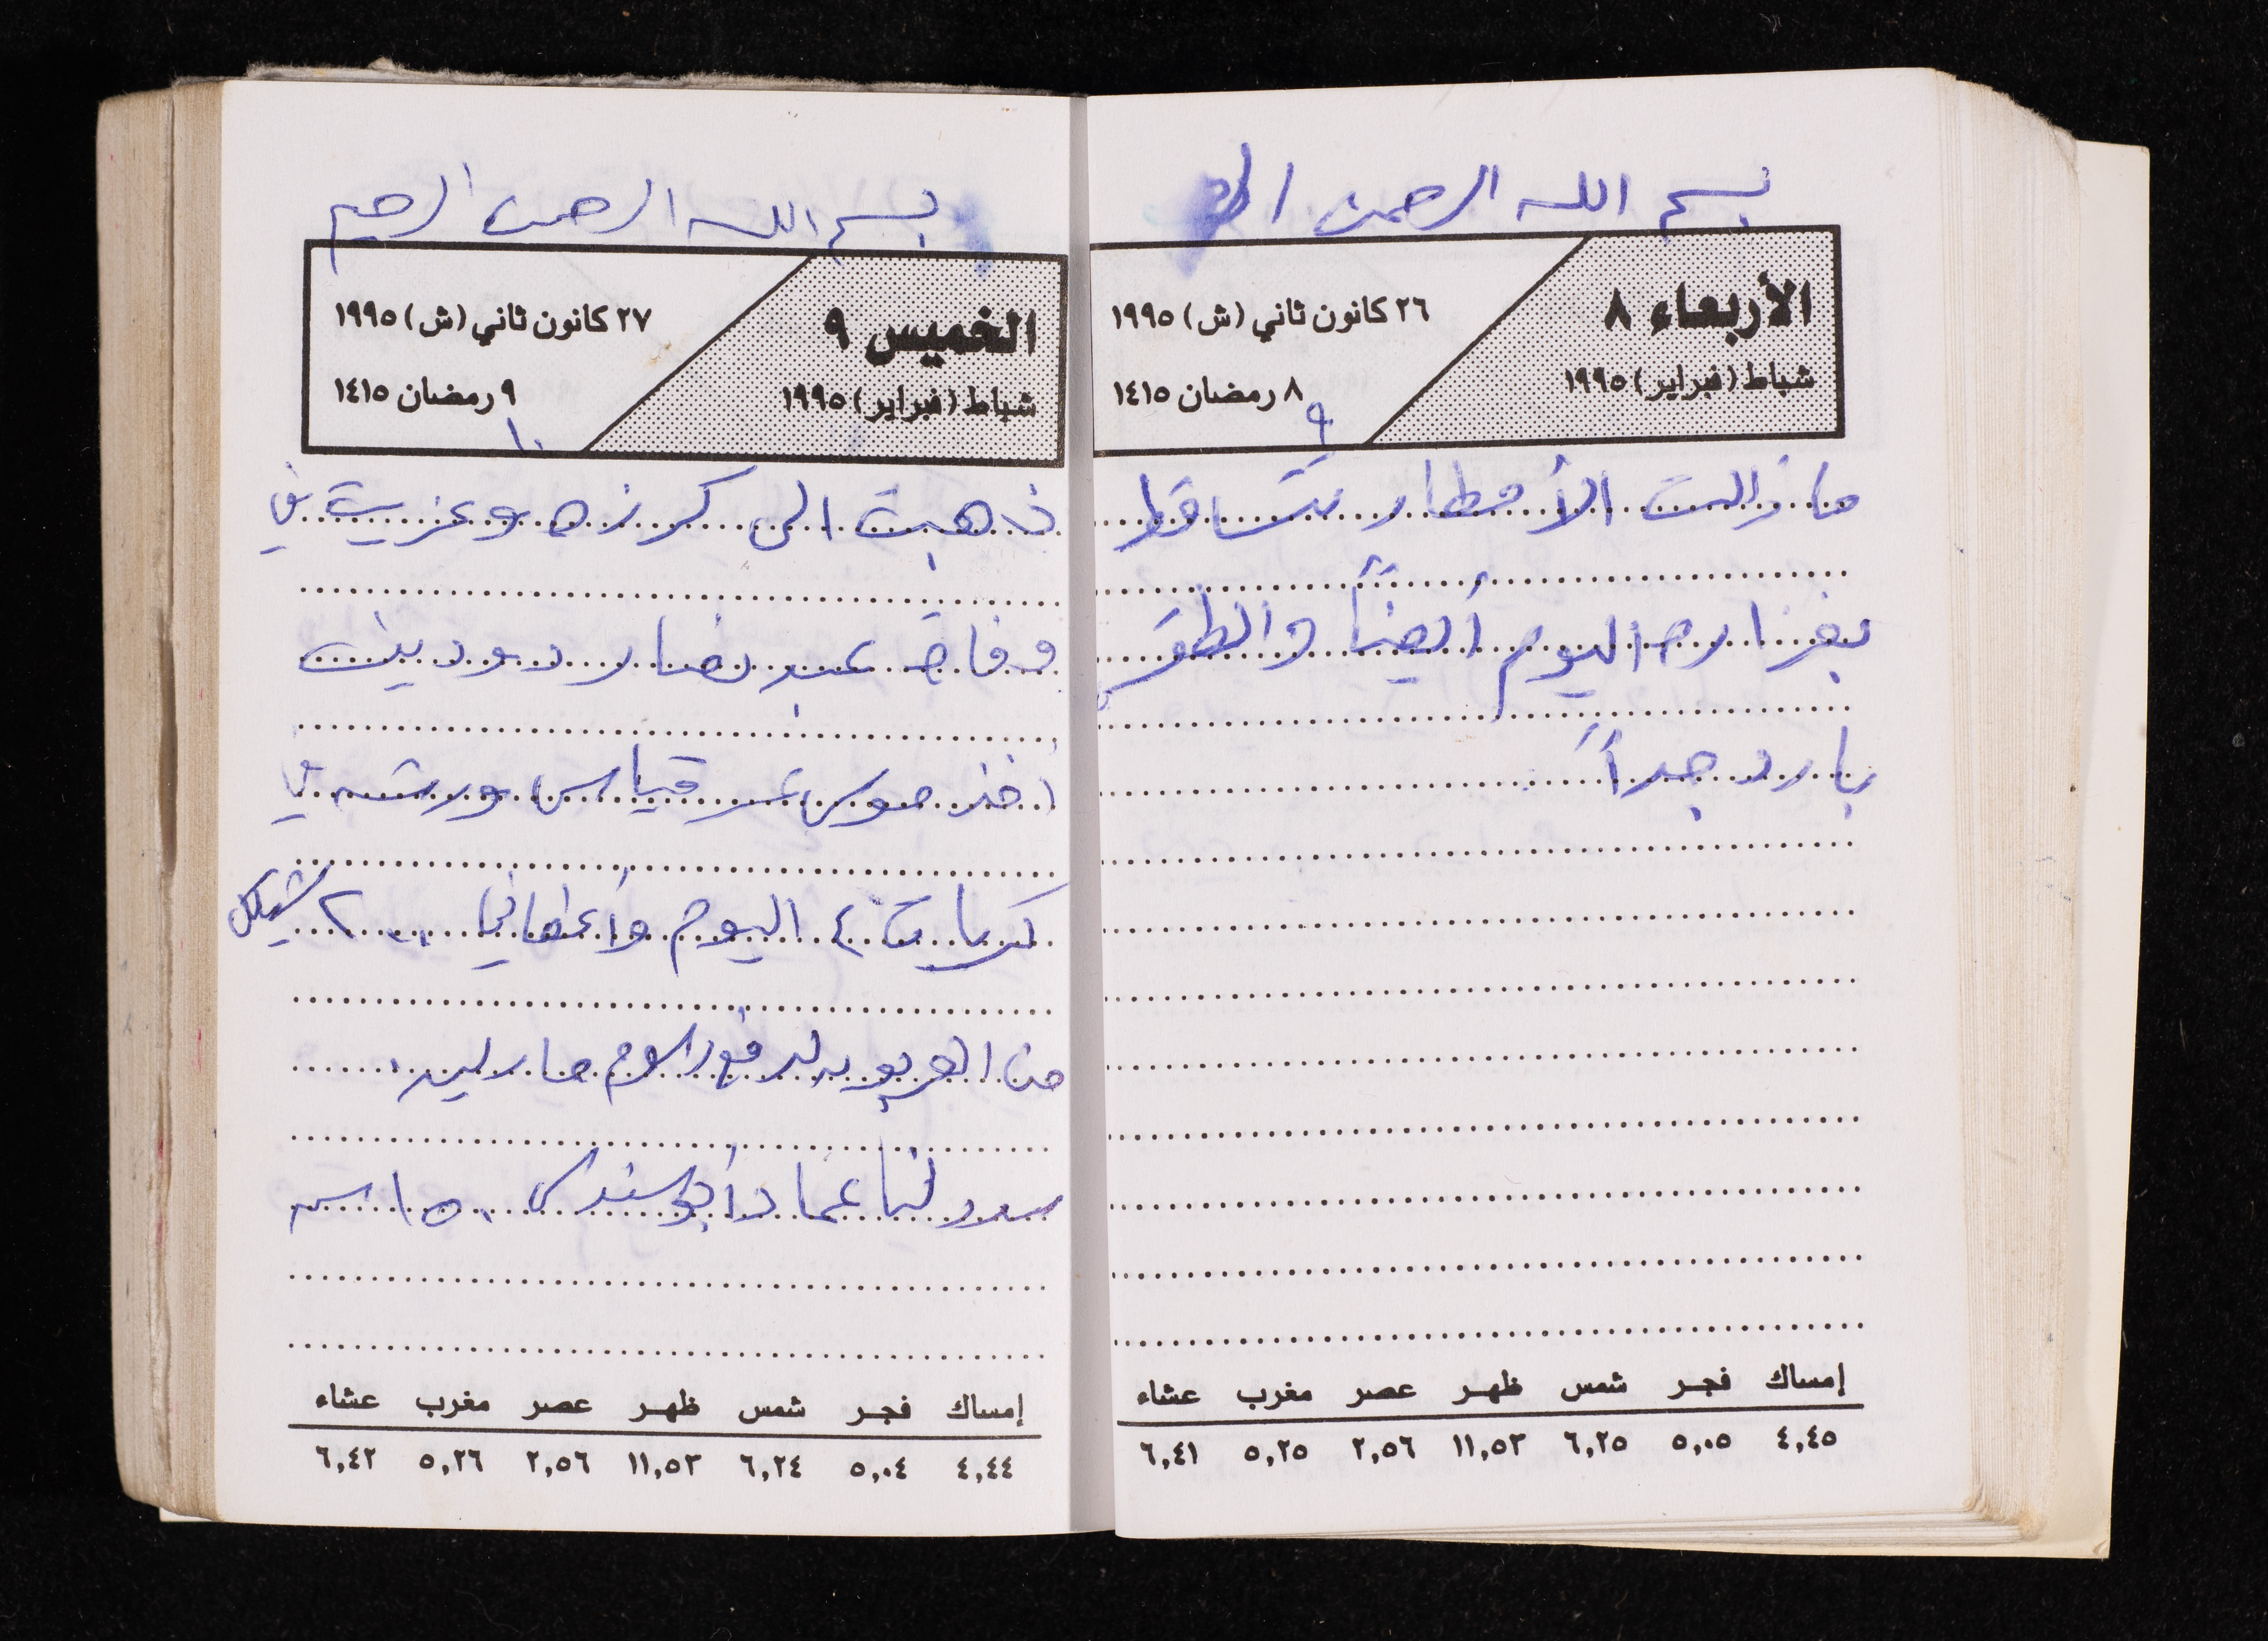 بسم الله الرحمن
الأربعاء ٨
شباط (فبراير) ١٩٩٥
٢٦ كانون ثاني (ش) ١٩٩٥
٨ رمضان ١٤١٥
٩
ما زالت الأمطار تتساقط
بغزاره اليوم أيضاً والطقس
بارد جداً
إمساك فجر شمس ظهر عصر مغرب عشاء
٤,٤٥ ٥,٠٥ ٦,٢٥ ١١,٥٣ ٢,٥٦ ٥,٢٥ ٦,٤١
بسم الله الرحمن الرحيم
الخميس ٩
شباط (فبراير) ١٩٩٥
٢٧ كانون ثاني (ش) ١٩٩٥
٩ رمضان ١٤١٥
١٠
ذهبت الى كرزه وعزيت في
وفاة عبد نصار دودين
أخذ موسى عمر قياس ورشه في
كريات ٤ اليوم وأعطاني ٢٠٠ شيكل
من
عماد أبو سندس ١٥٠
إمساك فجر شمس ظهر عصر مغرب عشاء
٤,٤٤ ٥,٠٤ ٦,٢٤ ١١,٥٣ ٢,٥٦ ٥,٢٦ ٦,٤٢